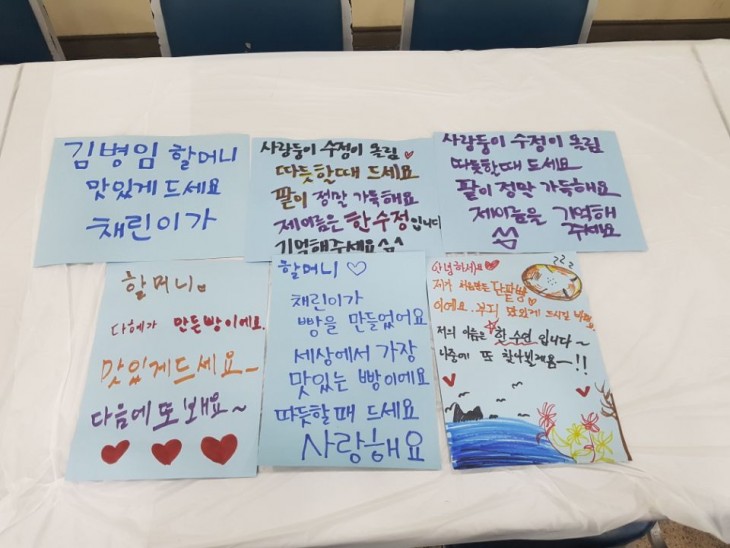 김병임 할머니
맛있게 드세요
채린이가
사랑둥이 수정이 올림♡
따듯할때 드세요
팥이 정말 가득해요
제이름은 한수정입니다
기억해주세요^^
사랑둥이 수정이 올림
따듯할때 드세요
팥이 정말 가득해요
제이름을 기억해
주세요
^^
할머니
다혜가 만든빵이에요.
맛있게드세요~
다음에 또 봬요~
할머니♡
채린이가
빵을 만들었어요
세상에서 가장
맛있는 빵이에요
따듯할 때 드세요
사랑해요
안녕하세요♥
제가 처음만든 단팥빵
이에요. 부디 맛있게 드시길
저의 이름은 한수연입니다~
나중에 또 찾아뵐게욤~!!